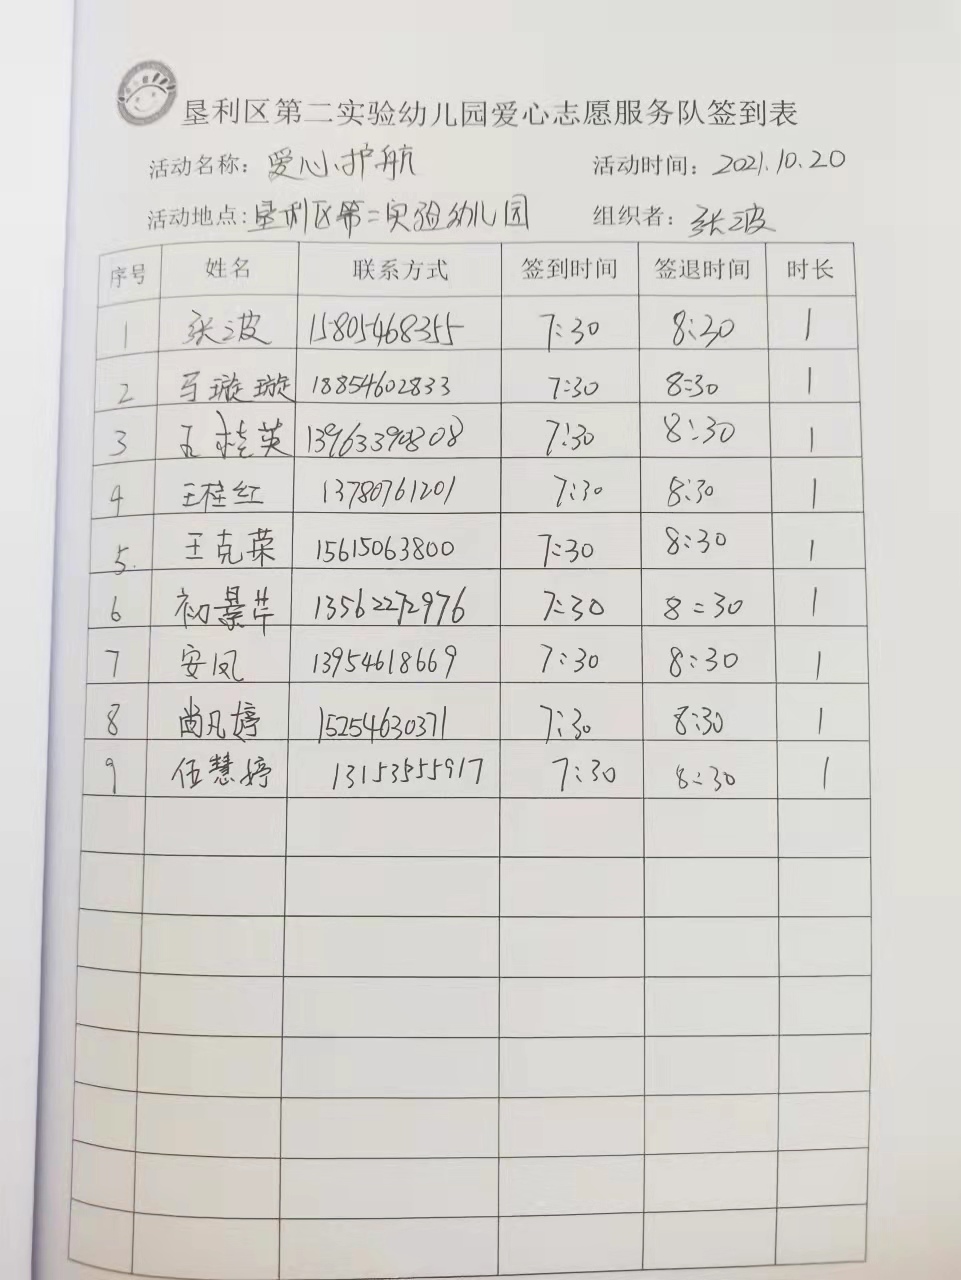 垦利区第二实验幼儿园爱心志愿服务队签到表
活动名称：爱心护航 活动时间：2021.10.20
活动地点：垦利区第二实验幼儿园 组织者：张波
序号 姓名 联系方式 签到时间 签退时间 时长
1 张波 15805468355 7:30 8:30 1
2 马璇璇 18854602833 7:30 8:30 1
3 王桂英 13963390808 7:30 8:30 1
4 王桂红 13780761201 7:30 8:30 1
5. 王克荣 15615063800 7:30 8:30 1
6 初景芹 13562272976 7:30 8:30 1
7 安凤 13954618669 7:30 8:30 1
8 尚凡婷 15254630371 7:30 8:30 1
9 伍慧婷 13153555917 7:30 8:30 1